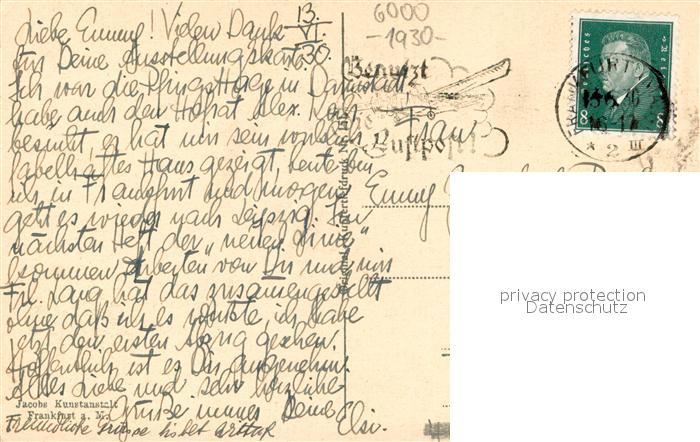 Liebe Emmy! Vielen Dank
13.
VI
30.
für Deine Ausstellungskarte.
Ich war die Pfingsttage in Darmstadt
habe auch den Hofrat Alex. Koch
besucht, er hat uns sein wunder-
fabelhaftes Haus gezeigt, heute bin
ich in Frankfurt und morgen
geht es wieder nach Leipzig. Im
nächsten Heft der "neuen Linie"
kommen Arbeiten von Dir und mir
Frl. Lang hat das zusammengestellt
ohne daß ich es wußte, ich habe
jetzt den ersten Abzug gesehen.
Hoffentlich ist es Dir angenehm.
Alles Liebe und sehr herzliche
Grüße immer Deine Elsi.
Freundliche Grüsse
Jacobs Kunstanstalt
Frankfurt a. M.
6000
-1930-
Benutzt
Luftpost!
Frau
Emmy
Deutsches
8
8
FRANKFURT
* 2 III
privacy protection
Datenschutz